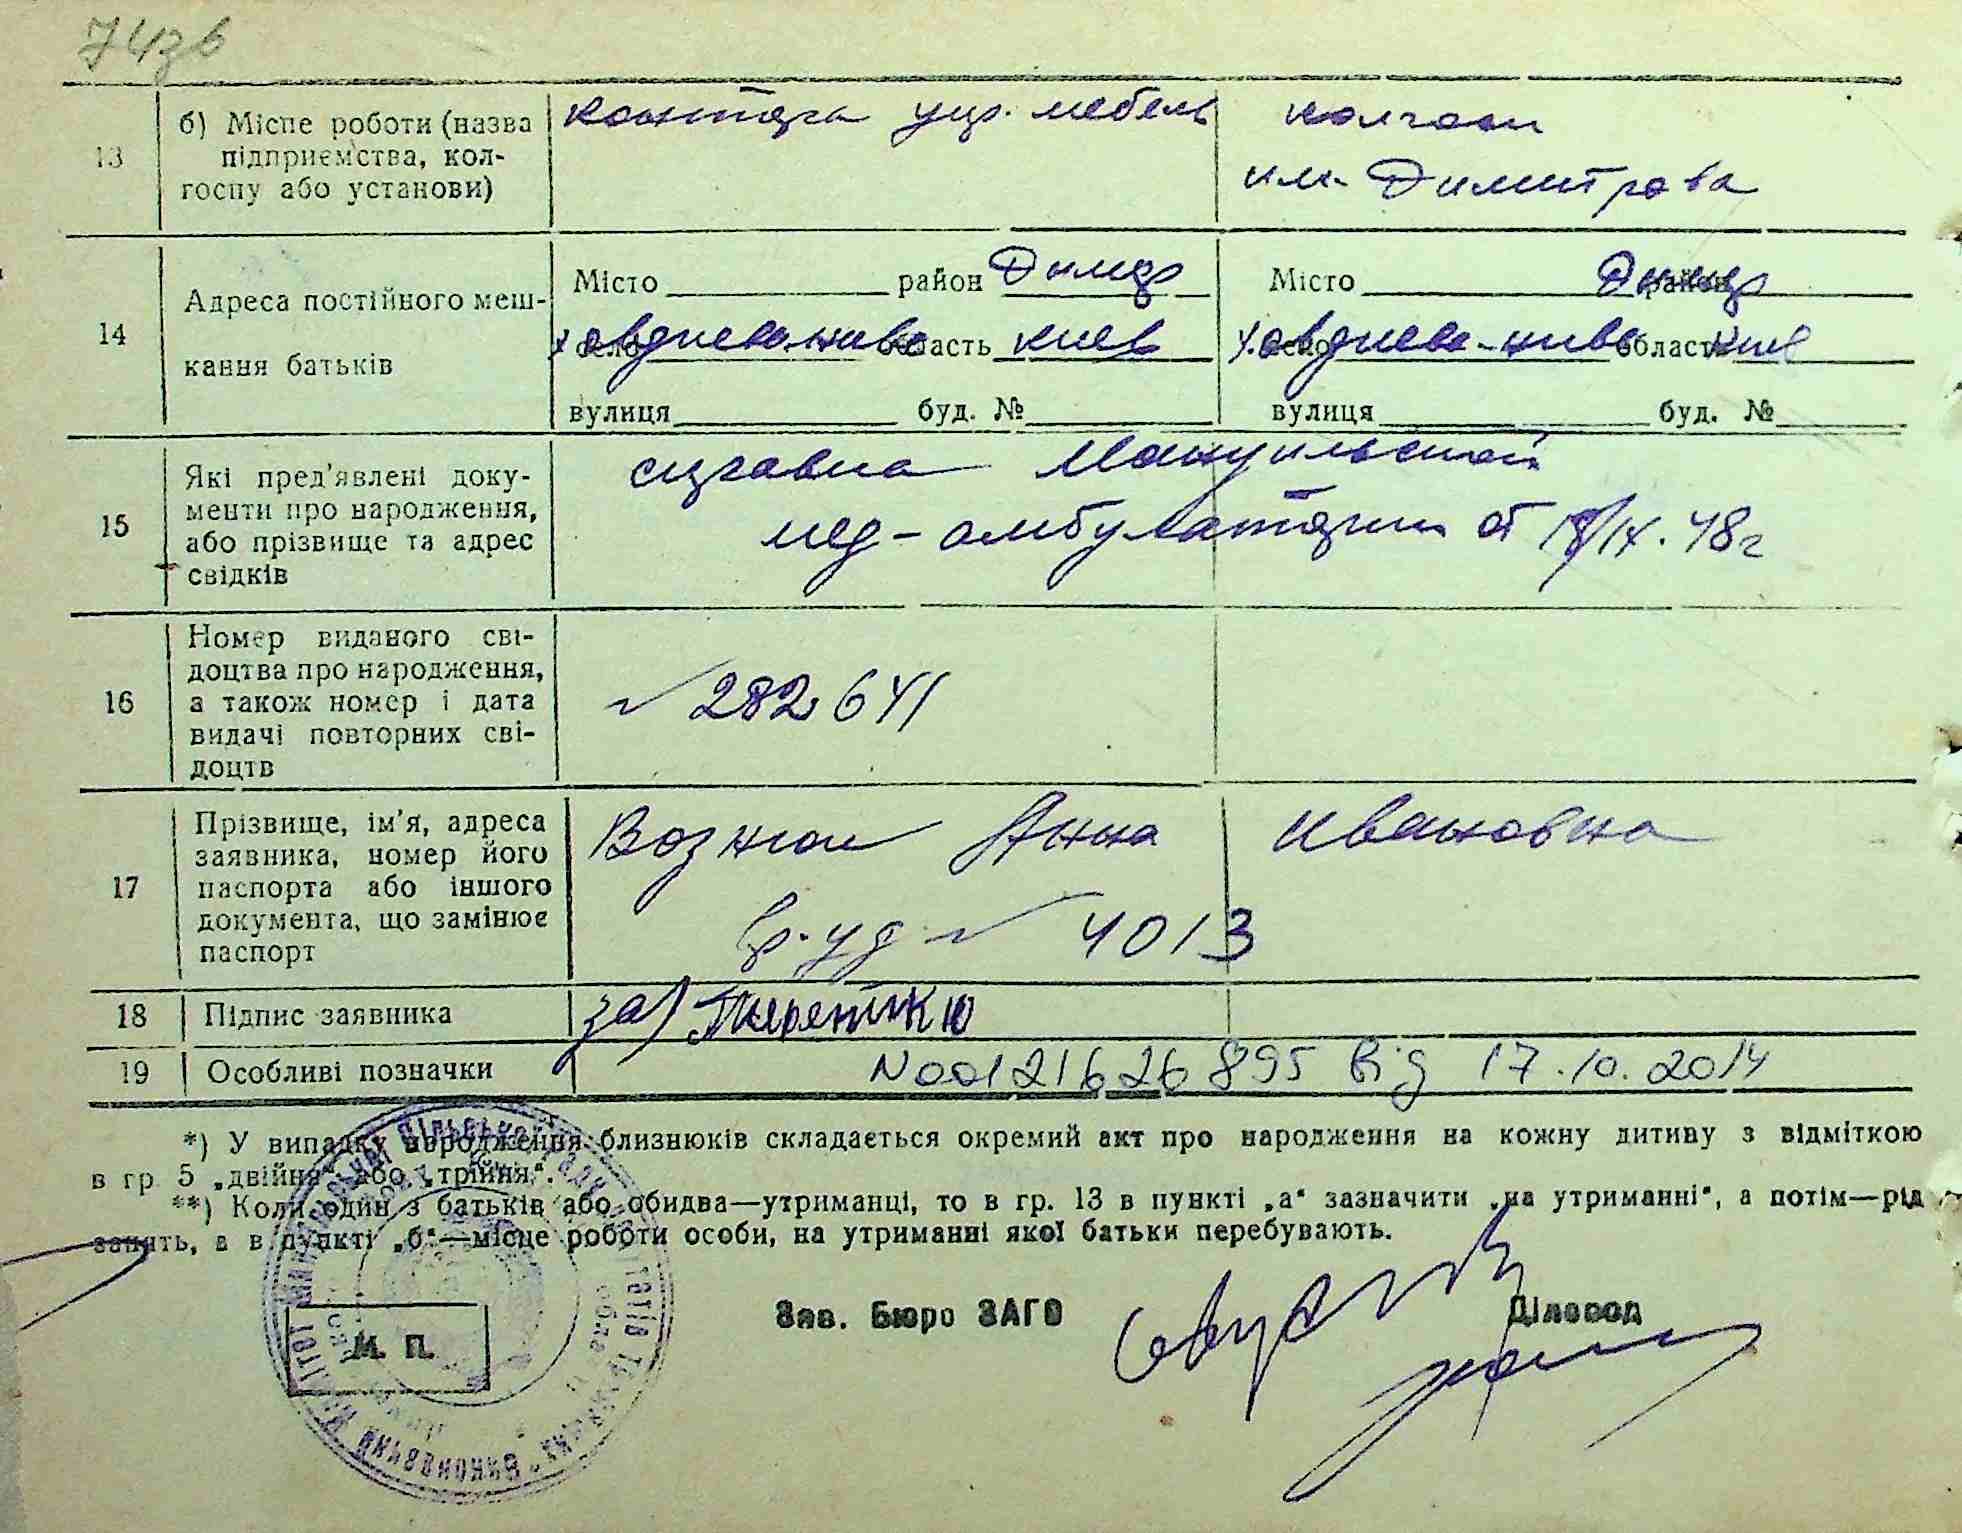 13
б) Місце роботи (назва
підприємства, кол-
госпу або установи)
контора упр. мебель
колгосп
им. Димитрова
14
Адреса постійного меш-
кання батьків
Місто район Дымер
село область киев
вулиця буд. №
Місто район Дымер
село х. овдиева-нива область киев
вулиця буд. №
15
Які пред'явлені доку-
менти про народження,
або прізвище та адрес
свідків
справка Мануильской
мед-амбулатории от 18/IX. 48г
16
Номер виданого сві-
доцтва про народження,
а також номер і дата
видачі повторних сві-
доцтв
282641
17
Прізвище, ім'я, адреса
заявника, номер його
паспорта або іншого
документа, що замінює
паспорт
Возн Анна Ивановна
вр. уд 4013
18
Підпис заявника
за)
19
Особливі позначки
N00121626895 від 17.10.2014
*) У випадку народження близнюків складається окремий акт про народження на кожну дитину з відміткою
в гр. 5 „двійня“, або „трійня“.
**) Коли один з батьків або обидва—утриманці, то в гр. 13 в пункті „а“ зазначити „на утриманні“, а потім—рід
занять, а в пункті „б“—місце роботи особи, на утриманні якої батьки перебувають.
Зав. Бюро ЗАГС
Діловод
М. П.